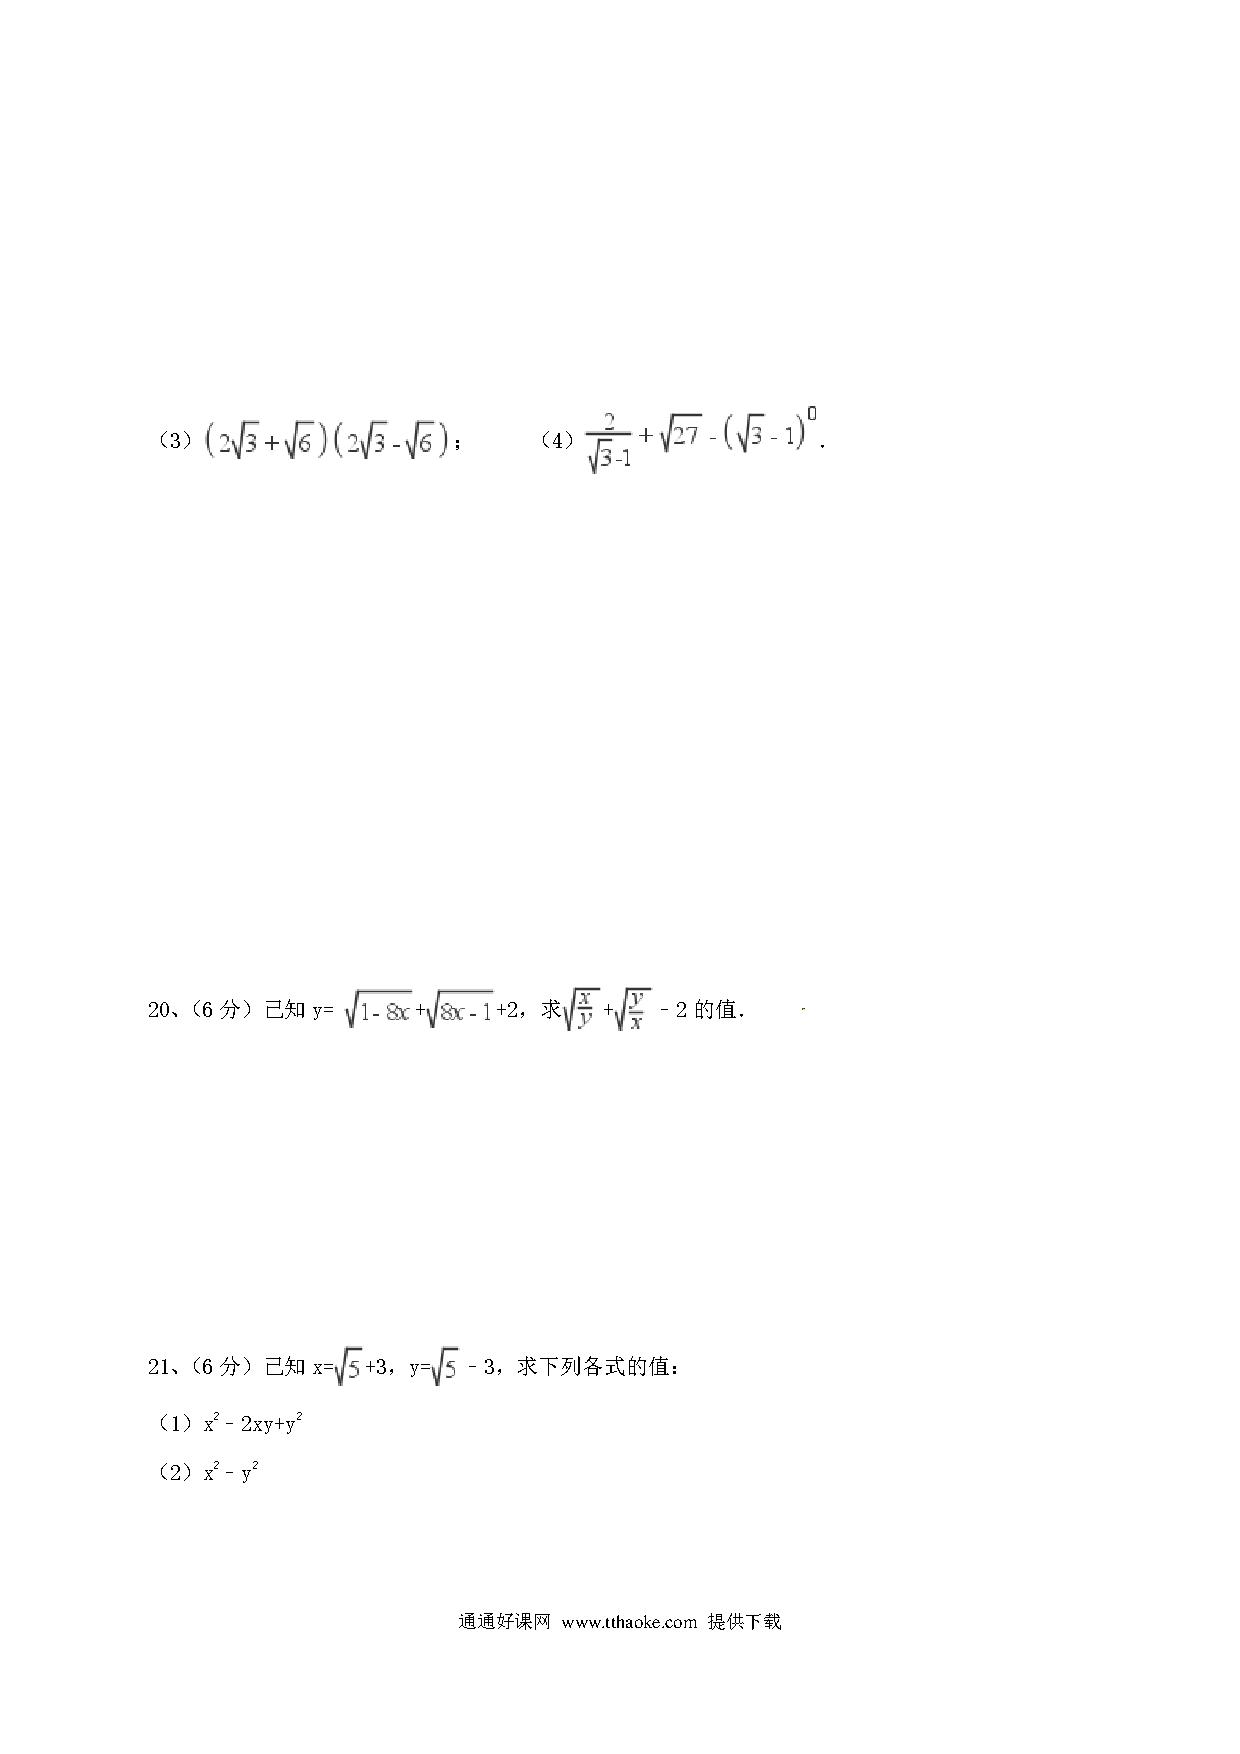 （3）(2√3+√6)(2√3-√6)； （4）2/(√3-1)+√27-(√3-1)⁰．
20、（6 分）已知 y= √(1-8x)+√(8x-1)+2，求√(x/y)+√(y/x)﹣2 的值．
21、（6 分）已知 x=√5+3，y=√5﹣3，求下列各式的值：
（1）x²﹣2xy+y²
（2）x²﹣y²
通通好课网 www.tthaoke.com 提供下载